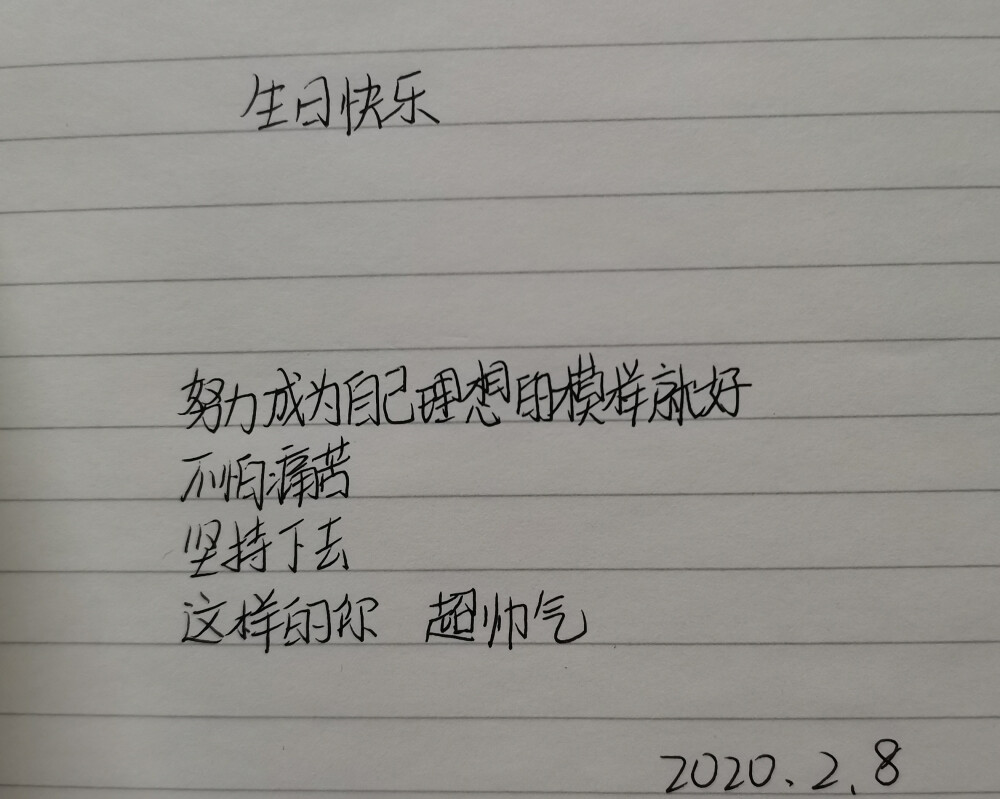 生日快乐
努力成为自己理想的模样就好
不怕痛苦
坚持下去
这样的你 超帅气
2020.2.8